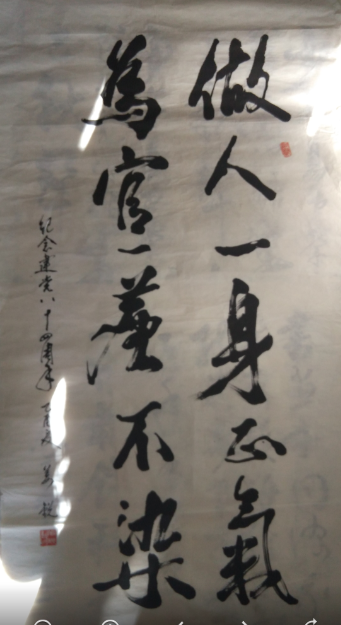 做人一身正氣
為官一塵不染
纪念建党八十四周年